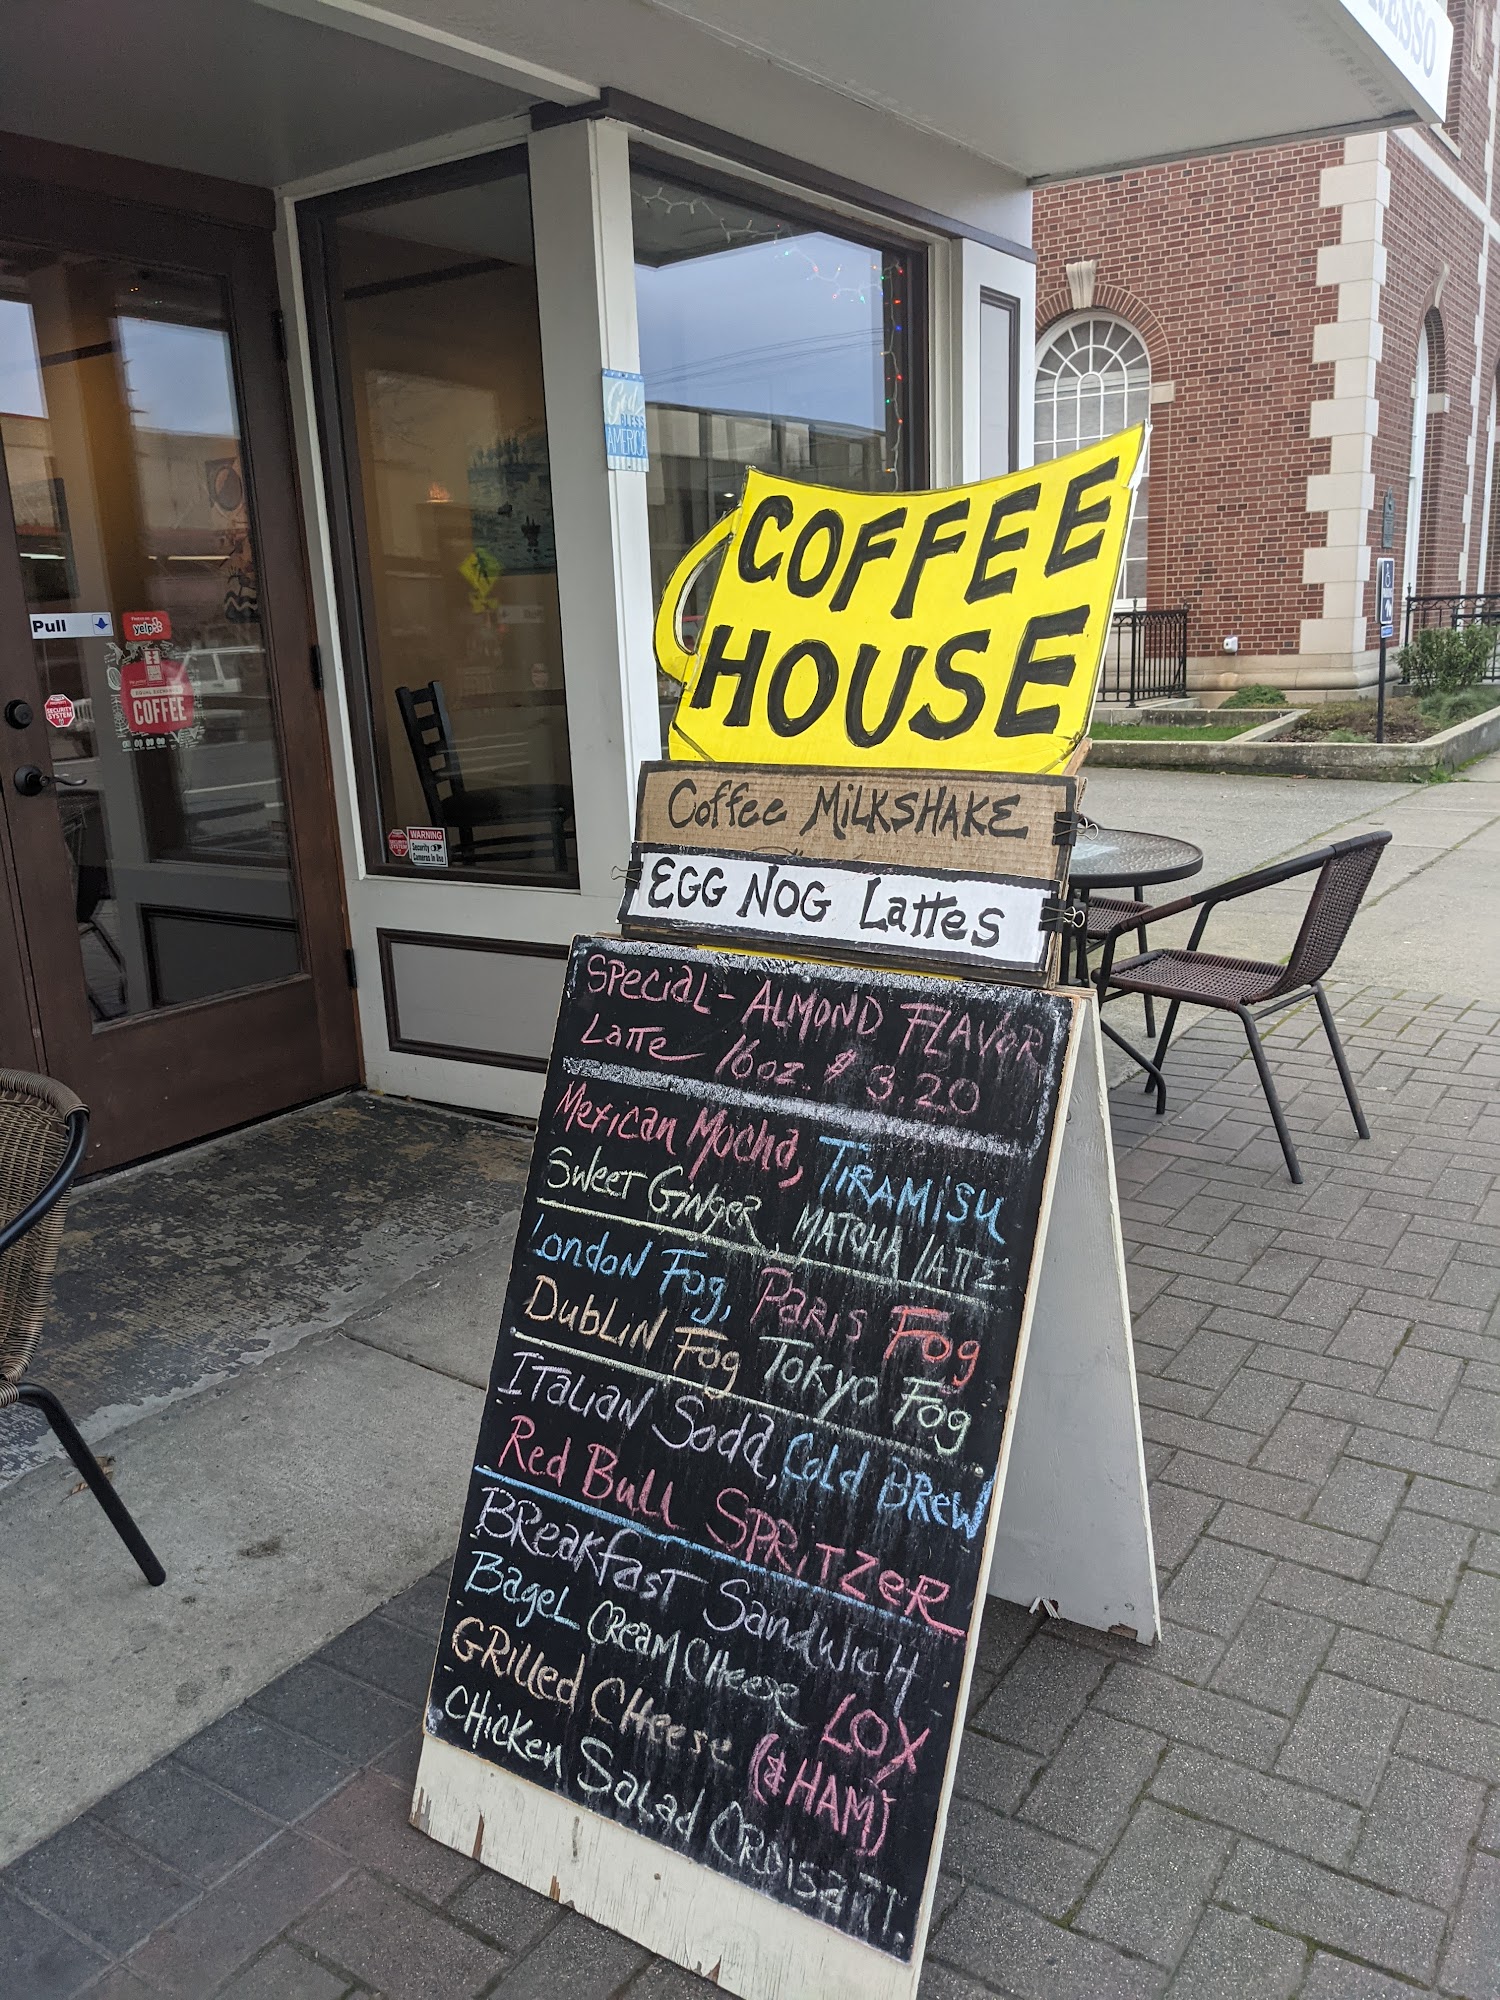 RESSO
God
BLESS
AMERICA
Pull
yelp
COFFEE
SECURITY
SYSTEM
WARNING
Security
Cameras In Use
COFFEE
HOUSE
Coffee MILKSHAKE
EGG NOG LATTES
SPECIAL - ALMOND FLAVOR
LATTE 16oz. $3.20
Mexican Mocha, TIRAMISU
SWEET GINGER, MATCHA LATTE
London Fog, PARIS FOG
DUBLIN FOG TOKYO FOG
ITALIAN Soda, Cold BREW
Red Bull SPRITZER
BREAKFAST SANDWICH
BAGEL CREAM CHEESE LOX
GRilled CHEESE (& HAM)
CHICKEN SALAD CROISANT.